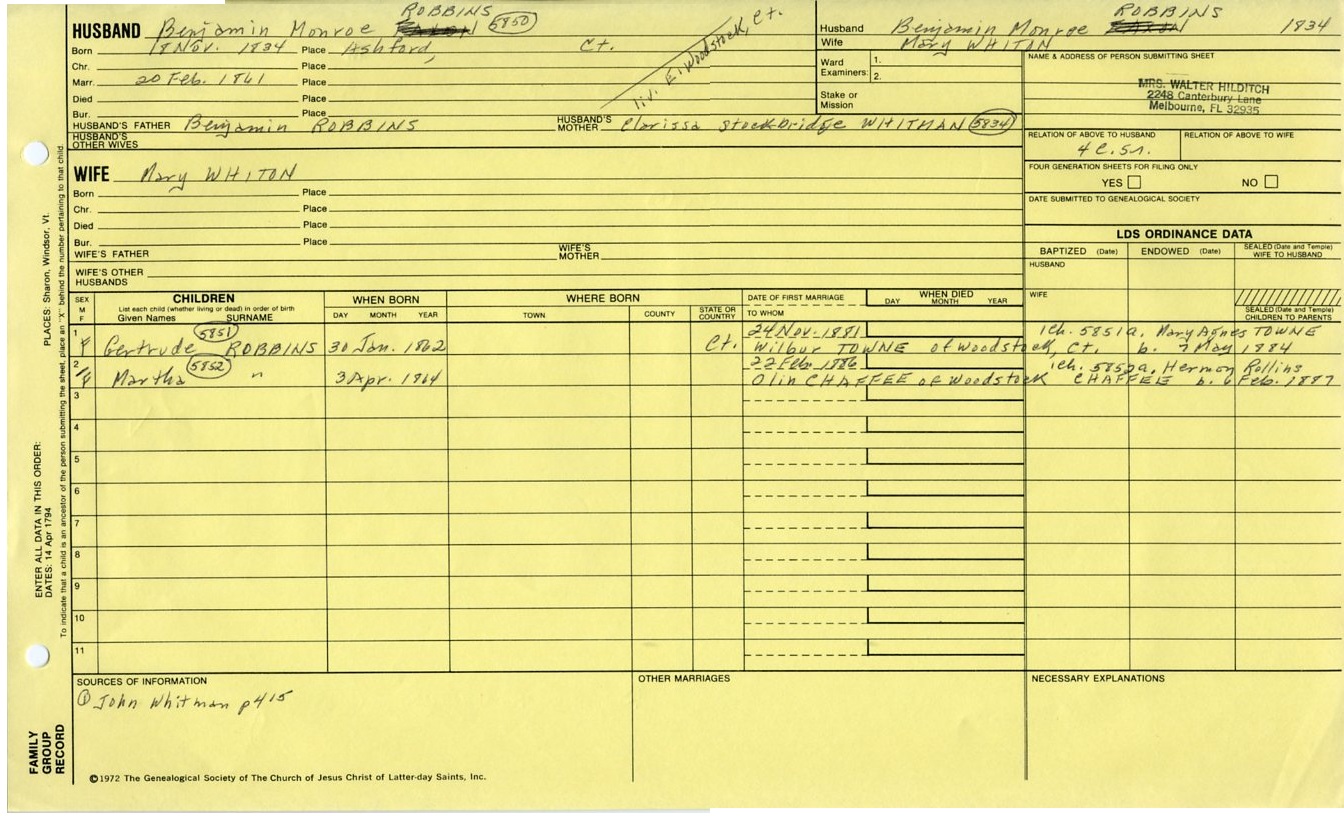 ROBBINS
HUSBAND Benjamin Monroe 5850
Born 18 Nov. 1834 Place Ashford, Ct.
Chr. Place
Marr. 20 Feb. 1861 Place
Died Place
Bur. Place
liv. E. Woodstock, Ct.
HUSBAND'S FATHER Benjamin ROBBINS HUSBAND'S MOTHER Clarissa Stockbridge WHITMAN 5834
HUSBAND'S OTHER WIVES
ROBBINS
Husband Benjamin Monroe 1834
Wife Mary WHITON
Ward 1.
Examiners: 2.
Stake or
Mission
NAME & ADDRESS OF PERSON SUBMITTING SHEET
MRS. WALTER HILDITCH
2248 Canterbury Lane
Melbourne, FL 32935
RELATION OF ABOVE TO HUSBAND RELATION OF ABOVE TO WIFE
4 C. 5r.
FOUR GENERATION SHEETS FOR FILING ONLY
YES NO
DATE SUBMITTED TO GENEALOGICAL SOCIETY
WIFE Mary WHITON
Born Place
Chr. Place
Died Place
Bur. Place
WIFE'S FATHER WIFE'S MOTHER
WIFE'S OTHER HUSBANDS
LDS ORDINANCE DATA
BAPTIZED (Date) ENDOWED (Date) SEALED (Date and Temple) WIFE TO HUSBAND
HUSBAND
WIFE
SEALED (Date and Temple) CHILDREN TO PARENTS
SEX M F CHILDREN WHEN BORN WHERE BORN DATE OF FIRST MARRIAGE WHEN DIED
List each child (whether living or dead) in order of birth
Given Names SURNAME DAY MONTH YEAR TOWN COUNTY STATE OR COUNTRY TO WHOM DAY MONTH YEAR
1 5851 24 Nov. 1881 1ch. 5851a. Mary Agnes TOWNE
F Gertrude ROBBINS 30 Jan. 1862 Ct. Wilbur TOWNE of Woodstock, Ct. b. 7 May 1884
2 5852 22 Feb. 1886 1ch. 5852a. Hermon Rollins
F Martha " 3 Apr. 1864 Olin CHAFFEE of Woodstock CHAFFEE b. 6 Feb. 1887
3
4
5
6
7
8
9
10
11
SOURCES OF INFORMATION OTHER MARRIAGES NECESSARY EXPLANATIONS
① John Whitman p415
©1972 The Genealogical Society of The Church of Jesus Christ of Latter-day Saints, Inc.
FAMILY
GROUP
RECORD
ENTER ALL DATA IN THIS ORDER:
DATES: 14 Apr 1794
PLACES: Sharon, Windsor, Vt.
To indicate that a child is an ancestor of the person submitting the sheet, place an "X" behind the number pertaining to that child.